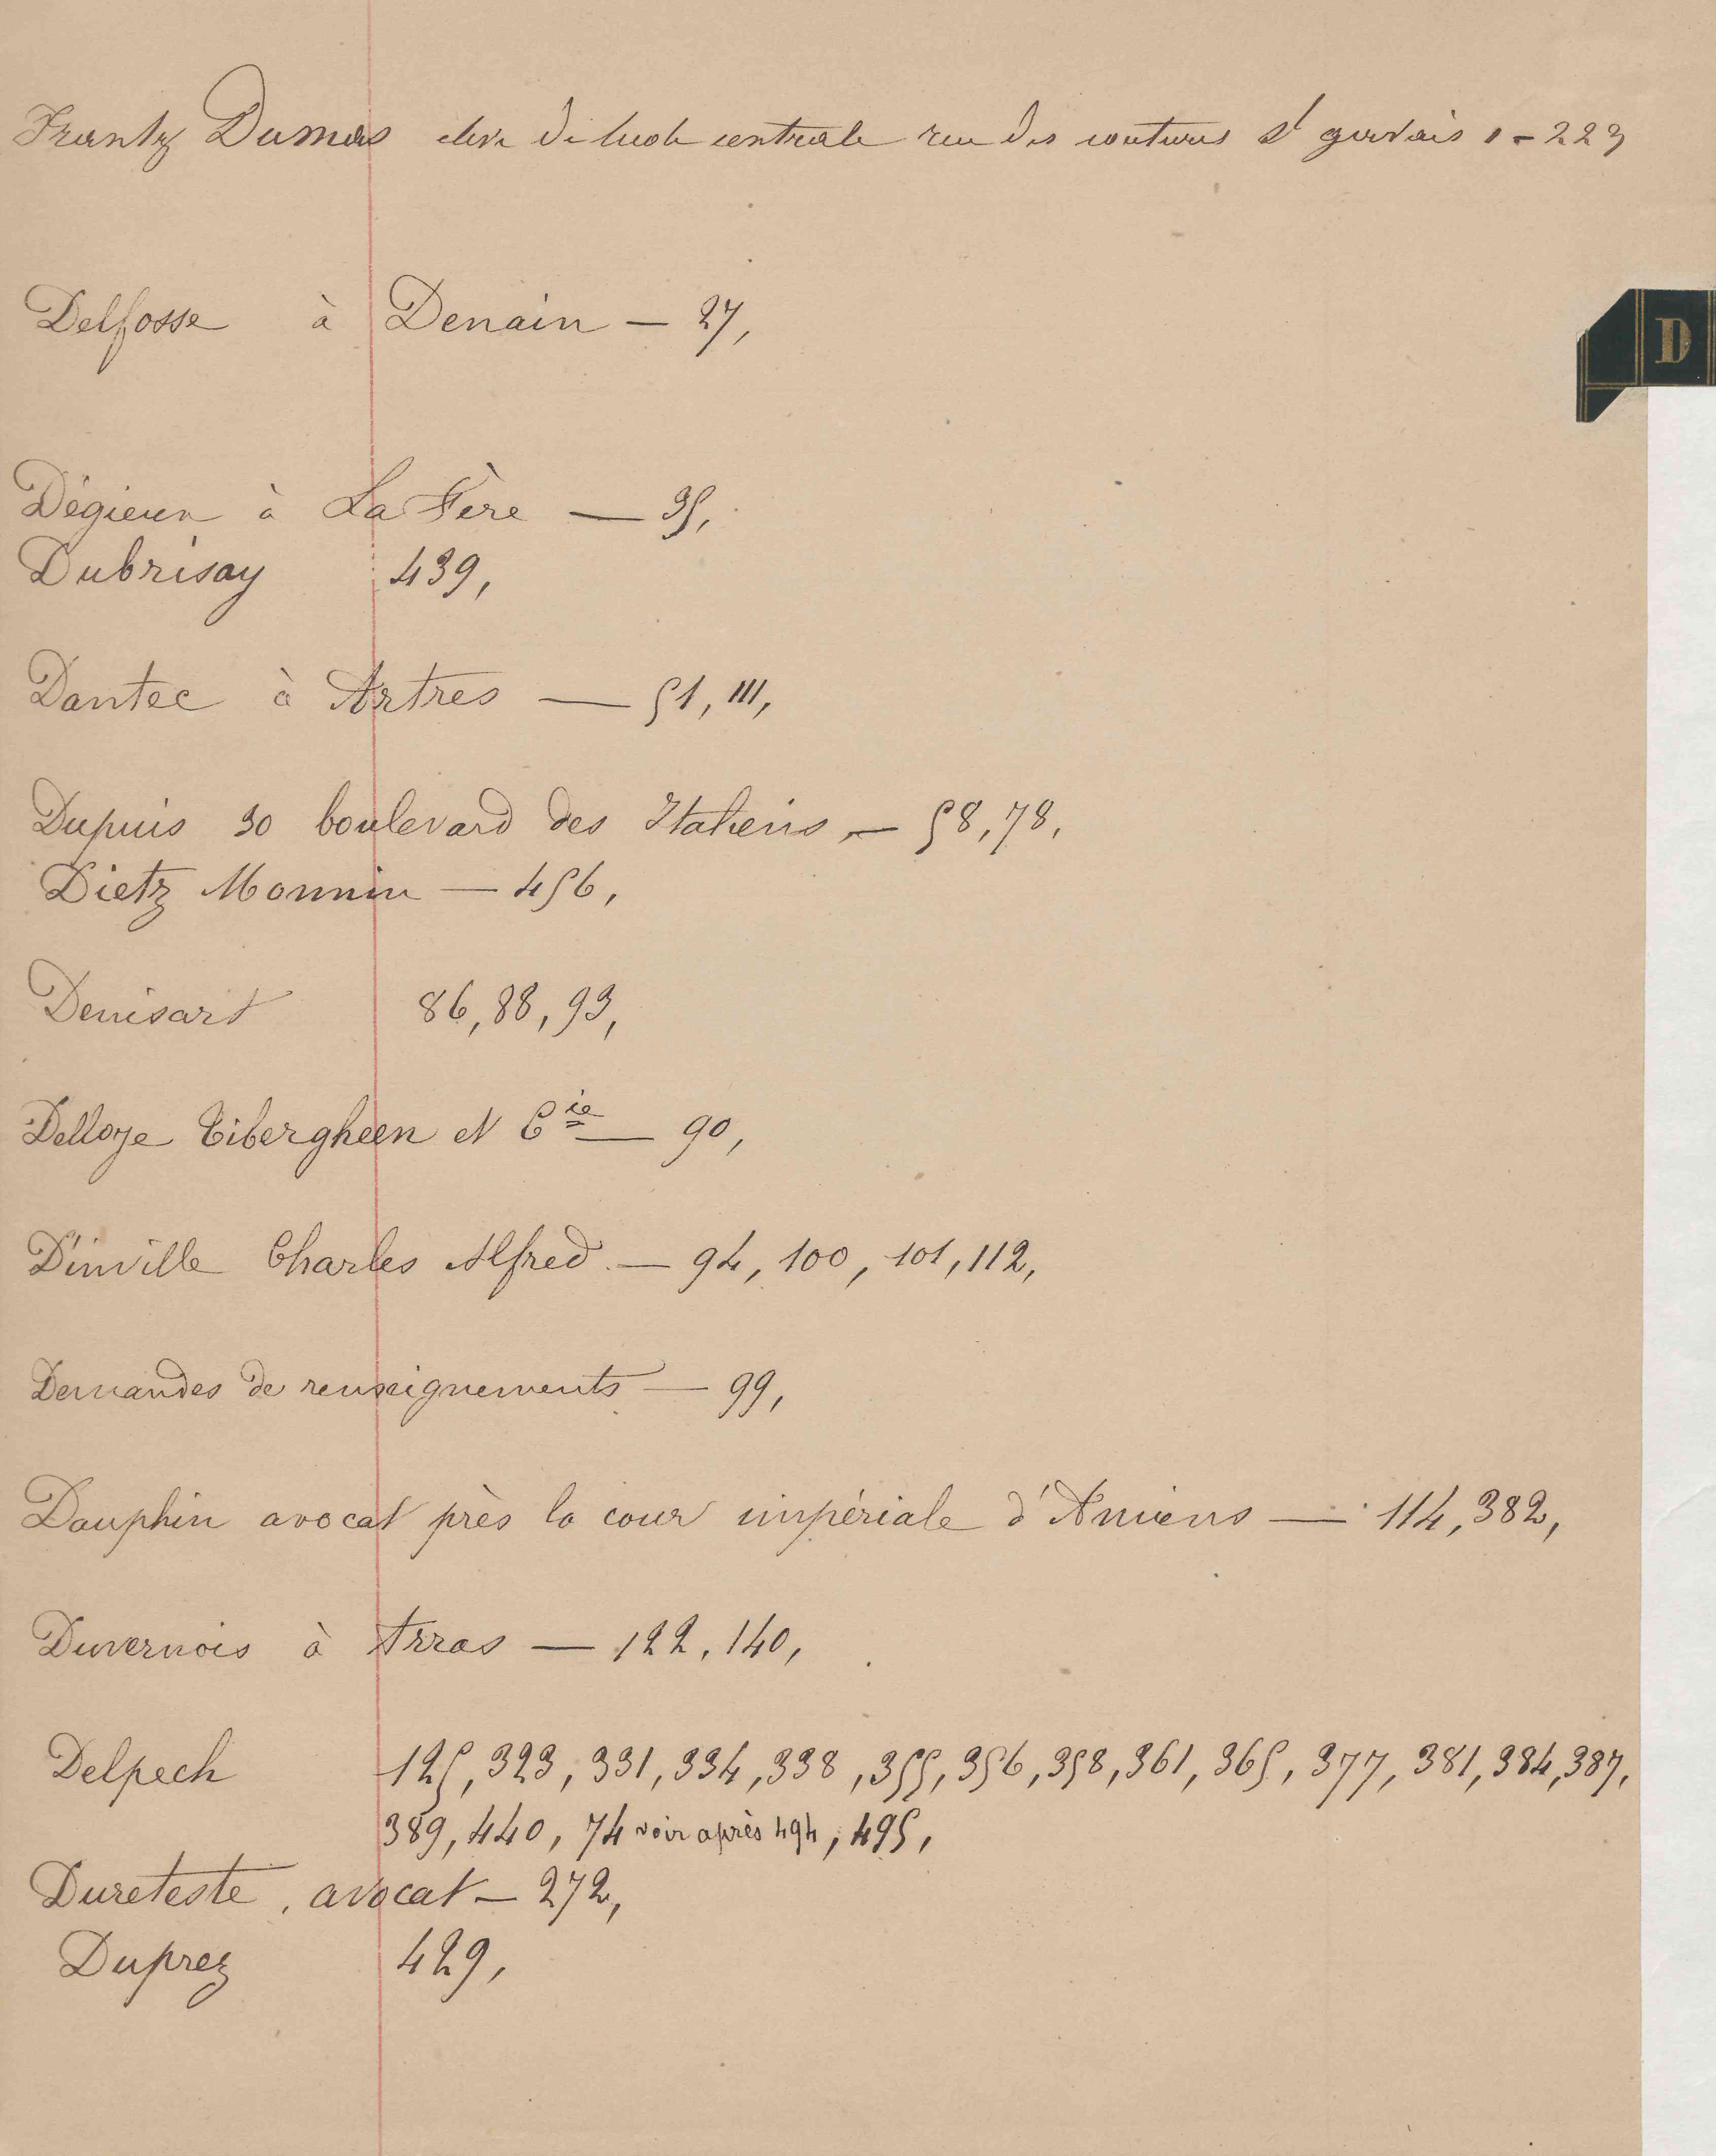 Frantz Dumas eleve de lecole centrale rue des coutures St gervais 1 - 223
D
Delfosse à Denain — 27,
Dégieux à La Fère — 35,
Dubrisay 439,
Dantec à Artres — 51, 111,
Dupuis 30 boulevard des Italiens — 58, 78,
Dietz Monnin — 456,
Denisart 86, 88, 93,
Delloye Tiberghien et Cie — 90,
D'inville Charles Alfred — 94, 100, 101, 112,
Demandes de renseignements — 99,
Dauphin avocat près la cour impériale d'Amiens — 114, 382,
Duvernois à Arras — 122, 140,
Delpech 125, 323, 331, 334, 338, 355, 356, 358, 361, 365, 377, 381, 384, 387,
389, 440, 74 voir après 494, 495,
Dureteste, avocat — 272,
Duprez 429,